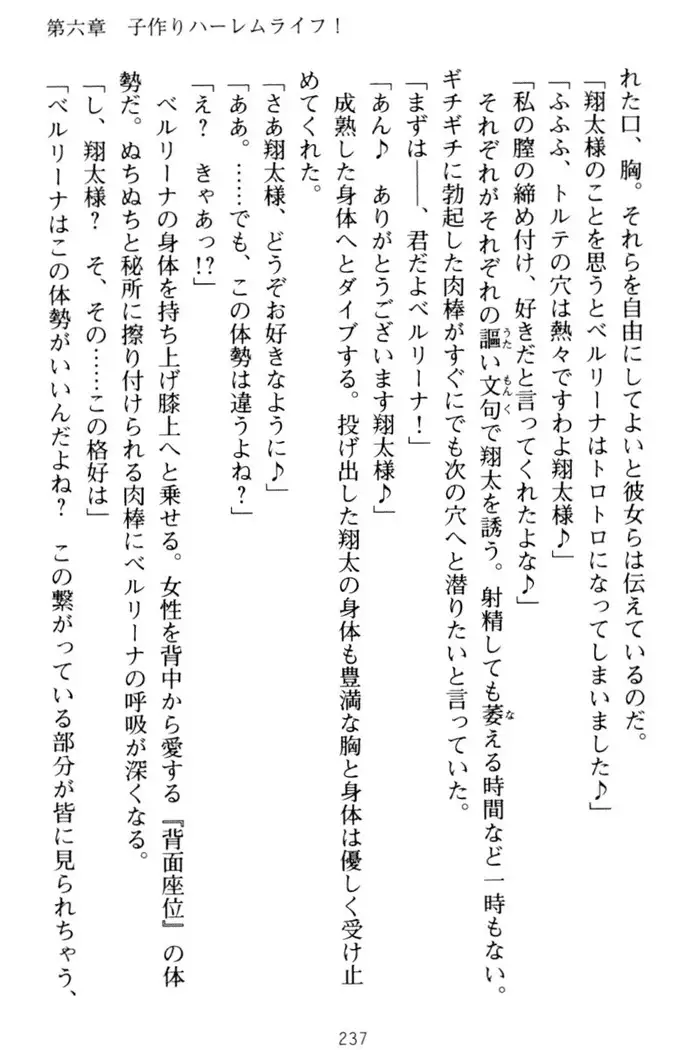 第六章　子作りハーレムライフ！
れた口、胸。それらを自由にしてよいと彼女らは伝えているのだ。
「翔太様のことを思うとベルリーナはトロトロになってしまいました♪」
「ふふふ、トルテの穴は熱々ですわよ翔太様♪」
「私の膣の締め付け、好きだと言ってくれたよな♪」
それぞれがそれぞれの謳い文句で翔太を誘う。射精しても萎える時間など一時もない。
ギチギチに勃起した肉棒がすぐにでも次の穴へと潜りたいと言っていた。
「まずは――、君だよベルリーナ！」
「あん♪　ありがとうございます翔太様♪」
成熟した身体へとダイブする。投げ出した翔太の身体も豊満な胸と身体は優しく受け止
めてくれた。
「さあ翔太様、どうぞお好きなように♪」
「ああ。……でも、この体勢は違うよね？」
「え？　きゃあっ!?」
ベルリーナの身体を持ち上げ膝上へと乗せる。女性を背中から愛する『背面座位』の体
勢だ。ぬちぬちと秘所に擦り付けられる肉棒にベルリーナの呼吸が深くなる。
「し、翔太様？　そ、その……この格好は」
「ベルリーナはこの体勢がいいんだよね？　この繋がっている部分が皆に見られちゃう、
237